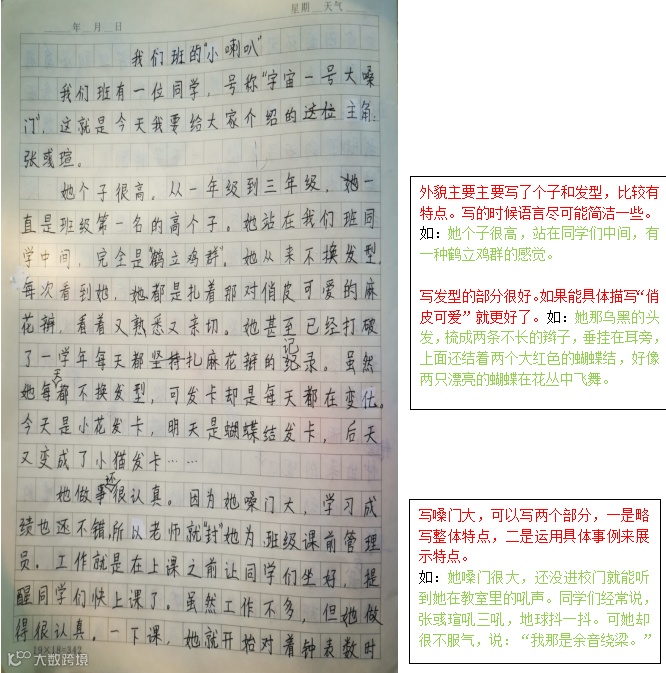 星期 天气
年 月 日
我们班的“小喇叭”
我们班有一位同学，号称“宇宙一号大嗓
门”，这就是今天我要给大家介绍的这位主角：
张彧瑄。
她个子很高。从一年级到三年级，她一
直是班级第一名的高个子。她站在我们班同
学中间，完全是“鹤立鸡群”。她从来不换发型，
每次看到她，她都是扎着那对俏皮可爱的麻
花辫，看着又熟悉又亲切。她甚至已经打破
了一学年每天都坚持扎麻花辫的纪录。虽然
记
她每都不换发型，可发卡却是每天都在变化。
天
今天是小花发卡，明天是蝴蝶结发卡，后天
又变成了小猫发卡……
她做事很认真。因为她嗓门大，学习成
还
绩也还不错，所以老师就“封”她为班级课前管理
员。工作就是在上课之前让同学们坐好，提
醒同学们快上课了。虽然工作不多，但她做
得很认真。一下课，她就开始对着钟表数时
19×18=342
大数跨境
外貌主要主要写了个子和发型，比较有
特点。写的时候语言尽可能简洁一些。
如：她个子很高，站在同学们中间，有
一种鹤立鸡群的感觉。
写发型的部分很好。如果能具体描写“俏
皮可爱”就更好了。如：她那乌黑的头
发，梳成两条不长的辫子，垂挂在耳旁，
上面还结着两个大红色的蝴蝶结，好像
两只漂亮的蝴蝶在花丛中飞舞。
写嗓门大，可以写两个部分，一是略
写整体特点，二是运用具体事例来展
示特点。
如：她嗓门很大，还没进校门就能听
到她在教室里的吼声。同学们经常说，
张彧瑄吼三吼，地球抖一抖。可她却
很不服气，说：“我那是余音绕梁。”